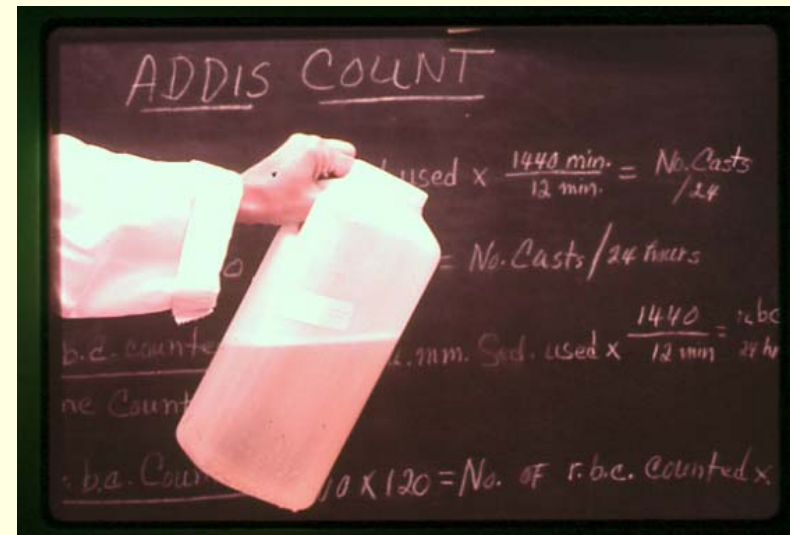 ADDIS COUNT
used x 1440 min. / 12 min. = No. Casts / 24
= No. Casts / 24 hours
b.c. counte mm. Sed. used x 1440 / 12 min = r.b.c 24 hr
ne Count
b.c. Coun 10 x 120 = No. of r.b.c. counted x